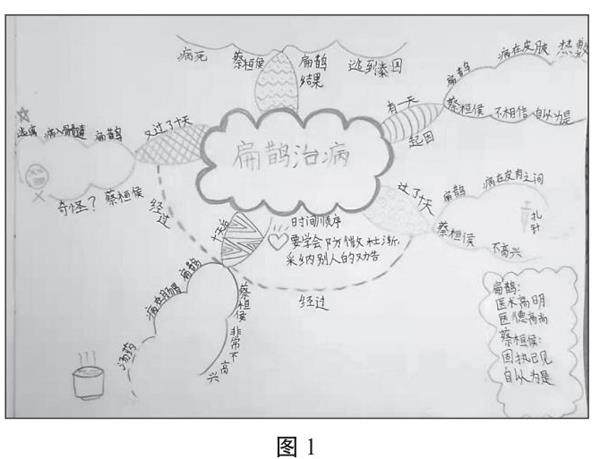 扁鹊治病
有一天
起因
扁鹊
病在皮肤
热敷
蔡桓侯
不相信
自以为是
过了十天
扁鹊
病在皮肉之间
扎针
蔡桓侯
不高兴
经过
十天后
扁鹊
病在肠胃
汤药
蔡桓侯
非常不高兴
经过
又过了十天
扁鹊
病入骨髓
蔡桓侯
奇怪？
结果
扁鹊
逃到秦国
蔡桓侯
病死
时间顺序
要学会防微杜渐
采纳别人的劝告
扁鹊:
医术高明
医德高尚
蔡桓侯:
固执己见
自以为是
图 1